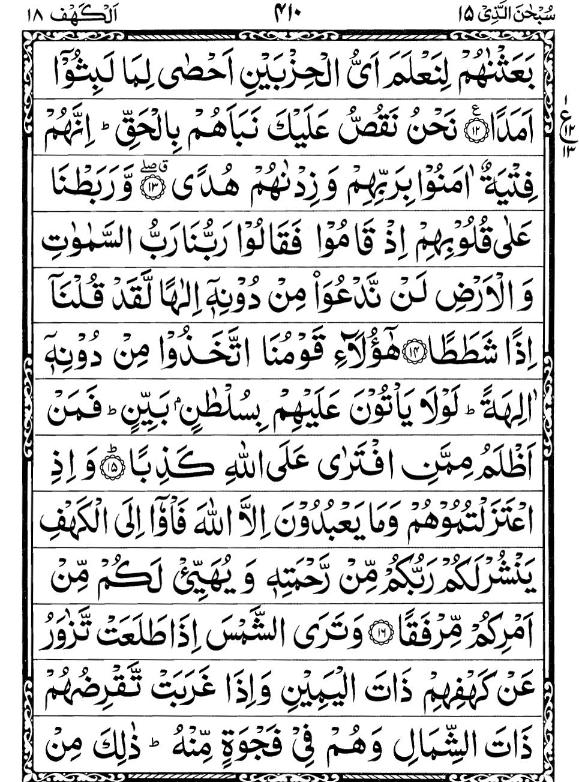 سُبْحٰنَ الَّذِیْۤ ۱۵
۴۱۰
اَلْکَهْف ۱۸
بَعَثْنٰهُمْ لِنَعْلَمَ اَیُّ الْحِزْبَیْنِ اَحْصٰی لِمَا لَبِثُوْۤا
اَمَدًا ﴿۱۲﴾ نَحْنُ نَقُصُّ عَلَیْكَ نَبَاَهُمْ بِالْحَقِّ ؕ اِنَّهُمْ
فِتْیَةٌ اٰمَنُوْا بِرَبِّهِمْ وَ زِدْنٰهُمْ هُدًی ﴿۱۳﴾ وَّ رَبَطْنَا
عَلٰی قُلُوْبِهِمْ اِذْ قَامُوْا فَقَالُوْا رَبُّنَا رَبُّ السَّمٰوٰتِ
وَ الْاَرْضِ لَنْ نَّدْعُوَاۡ مِنْ دُوْنِهٖۤ اِلٰهًا لَّقَدْ قُلْنَاۤ
اِذًا شَطَطًا ﴿۱۴﴾ هٰۤؤُلَآءِ قَوْمُنَا اتَّخَذُوْا مِنْ دُوْنِهٖۤ
اٰلِهَةً ؕ لَوْلَا یَاْتُوْنَ عَلَیْهِمْ بِسُلْطٰنٍۭ بَیِّنٍ ؕ فَمَنْ
اَظْلَمُ مِمَّنِ افْتَرٰی عَلَی اللّٰهِ کَذِبًا ﴿ؕ۱۵﴾ وَ اِذِ
اعْتَزَلْتُمُوْهُمْ وَمَا یَعْبُدُوْنَ اِلَّا اللّٰهَ فَاْوٗۤا اِلَی الْکَهْفِ
یَنْشُرْ لَکُمْ رَبُّکُمْ مِّنْ رَّحْمَتِهٖ وَ یُهَیِّئْ لَکُمْ مِّنْ
اَمْرِکُمْ مِّرْفَقًا ﴿۱۶﴾ وَ تَرَی الشَّمْسَ اِذَا طَلَعَتْ تَّزٰوَرُ
عَنْ کَهْفِهِمْ ذَاتَ الْیَمِیْنِ وَ اِذَا غَرَبَتْ تَّقْرِضُهُمْ
ذَاتَ الشِّمَالِ وَ هُمْ فِیْ فَجْوَةٍ مِّنْهُ ؕ ذٰلِكَ مِنْ
۱
ع
۱۲
۱۳